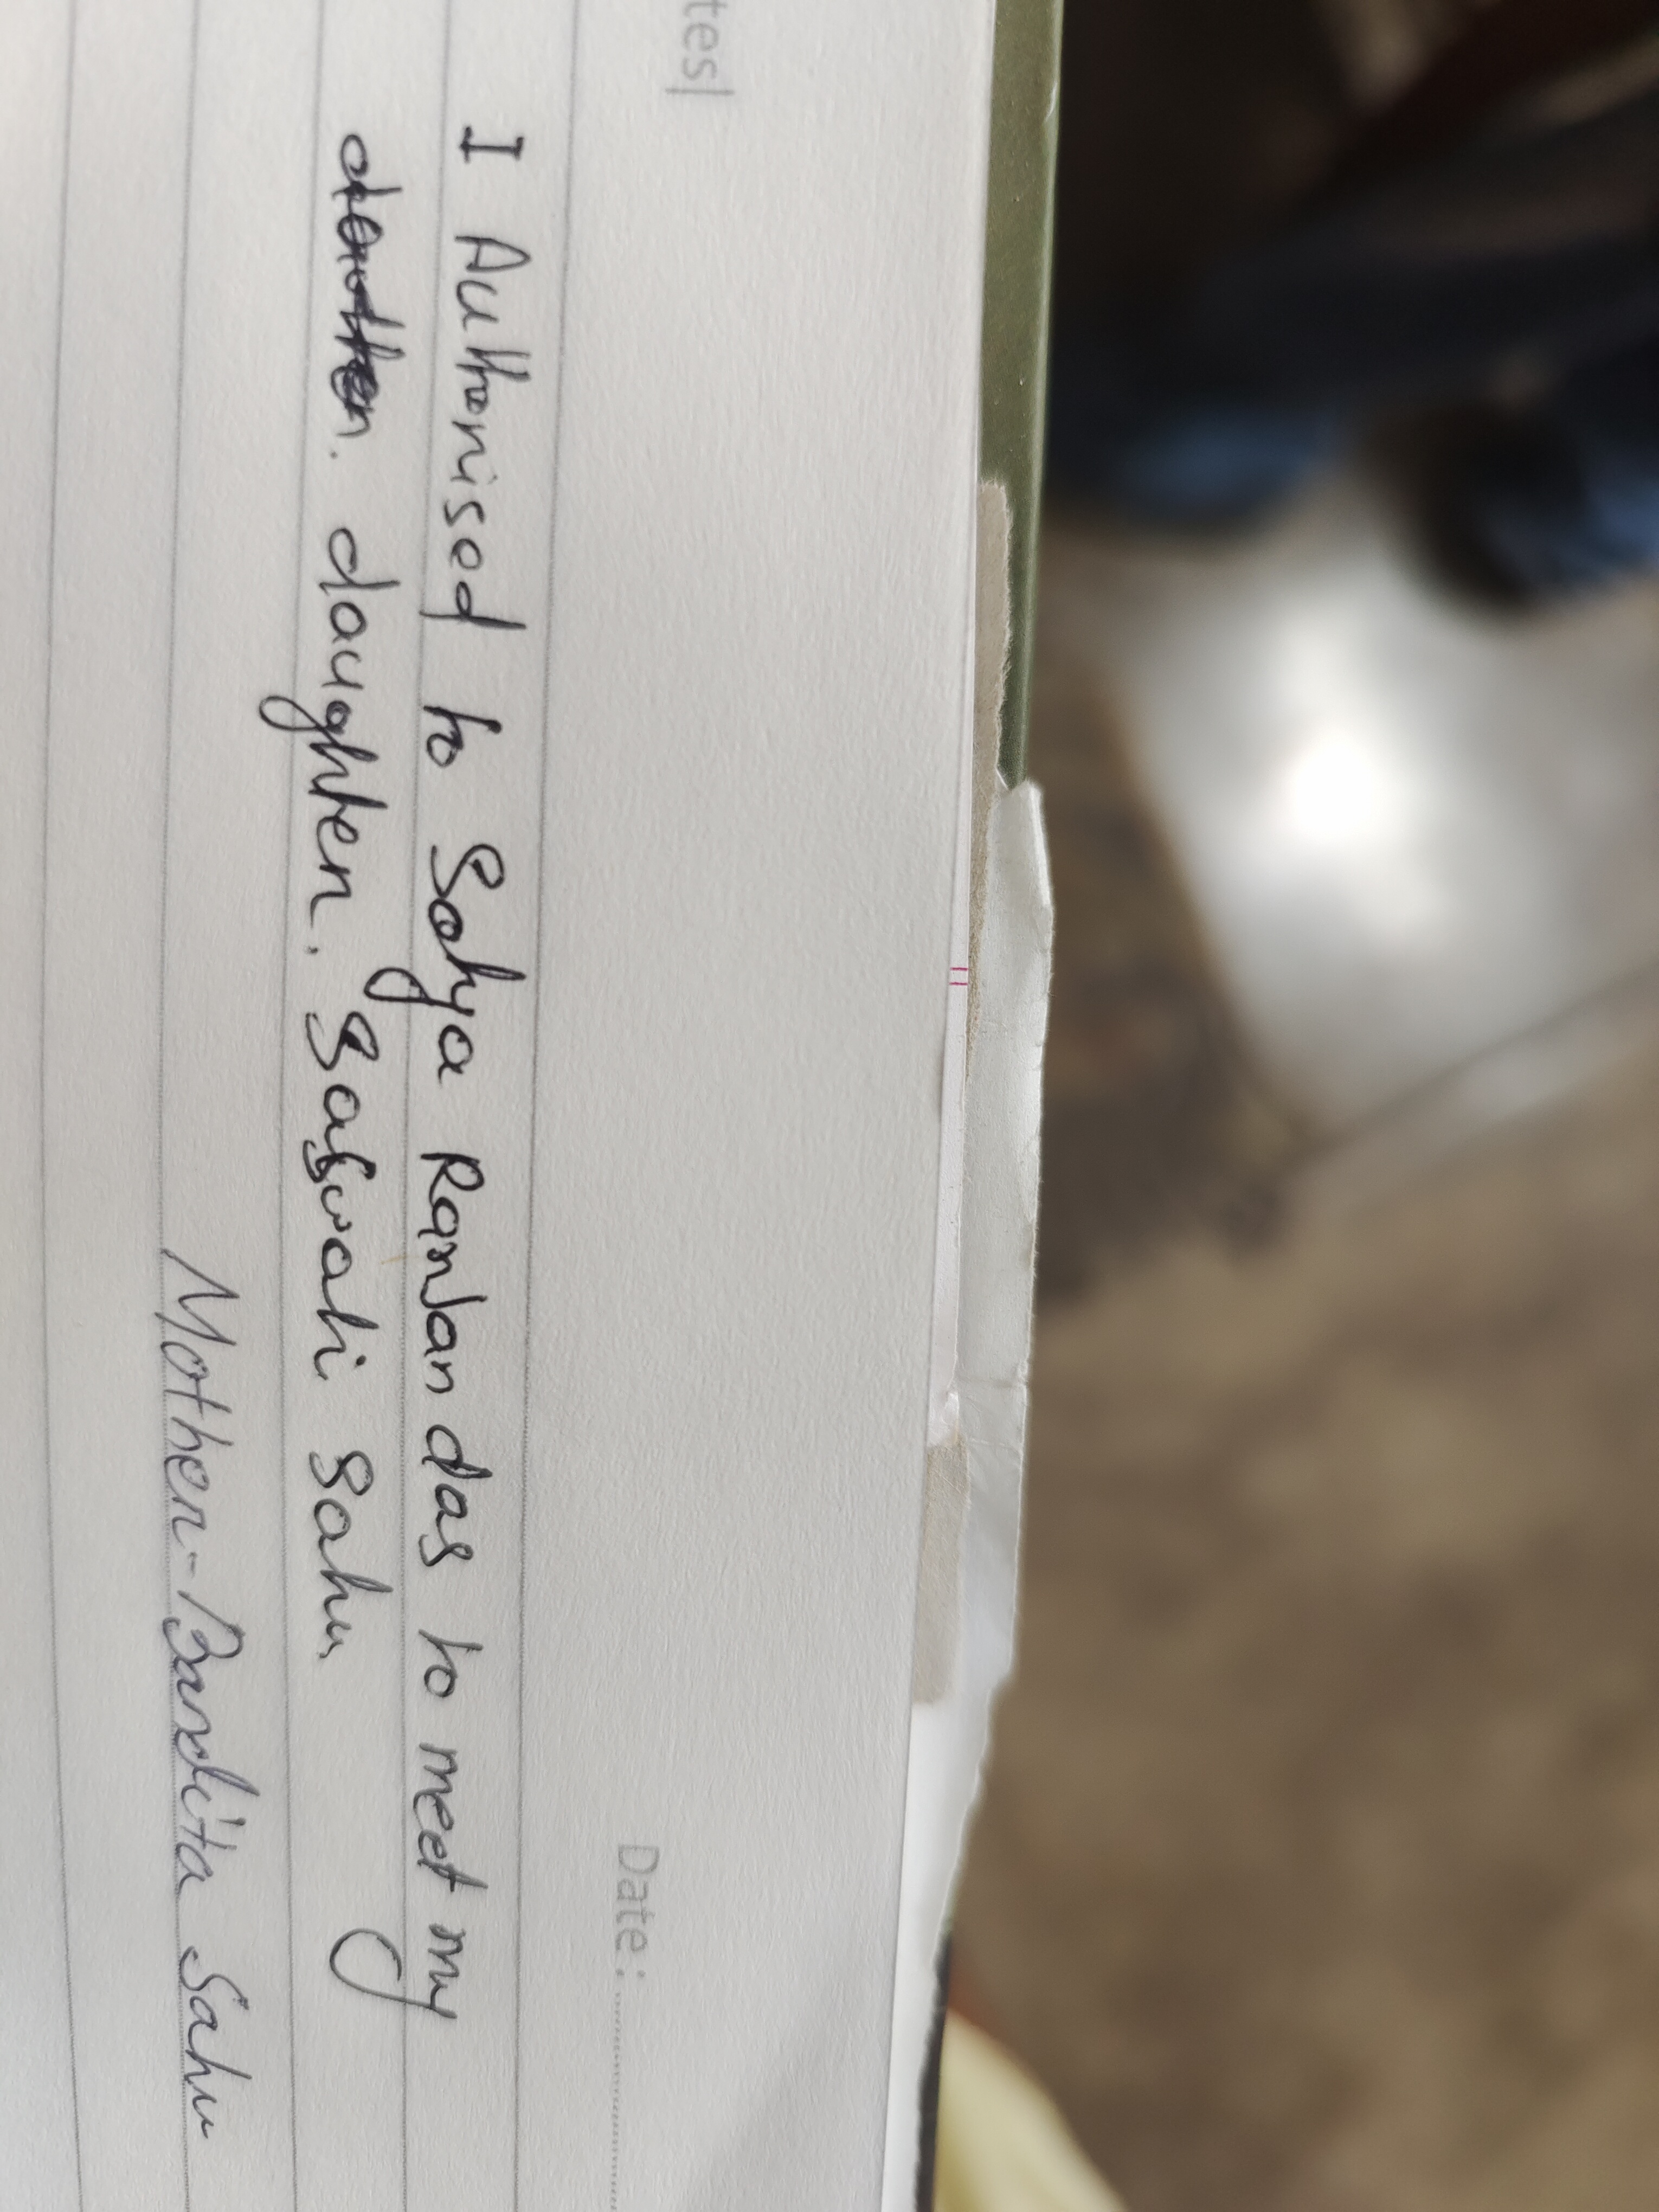 tes|
Date : ..............
I Authorised to Satya Ranjan das to meet my
daughter. Saswati Sahu
Mother - Bandita Sahu